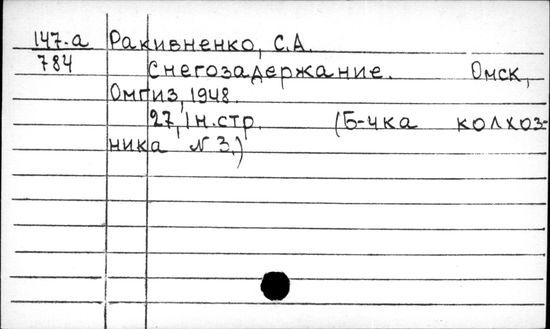 147-а Ракивненко, С.А.
784 Снегозадержание. Омск,
Омгиз, 1948.
27, 1 н.стр. (Б-чка колхоз-
ника N 3.)